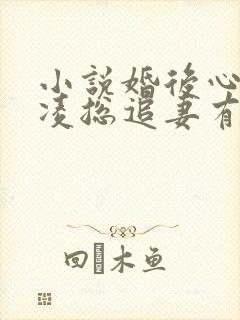 小説婚後心
凌總追妻有
回木鱼